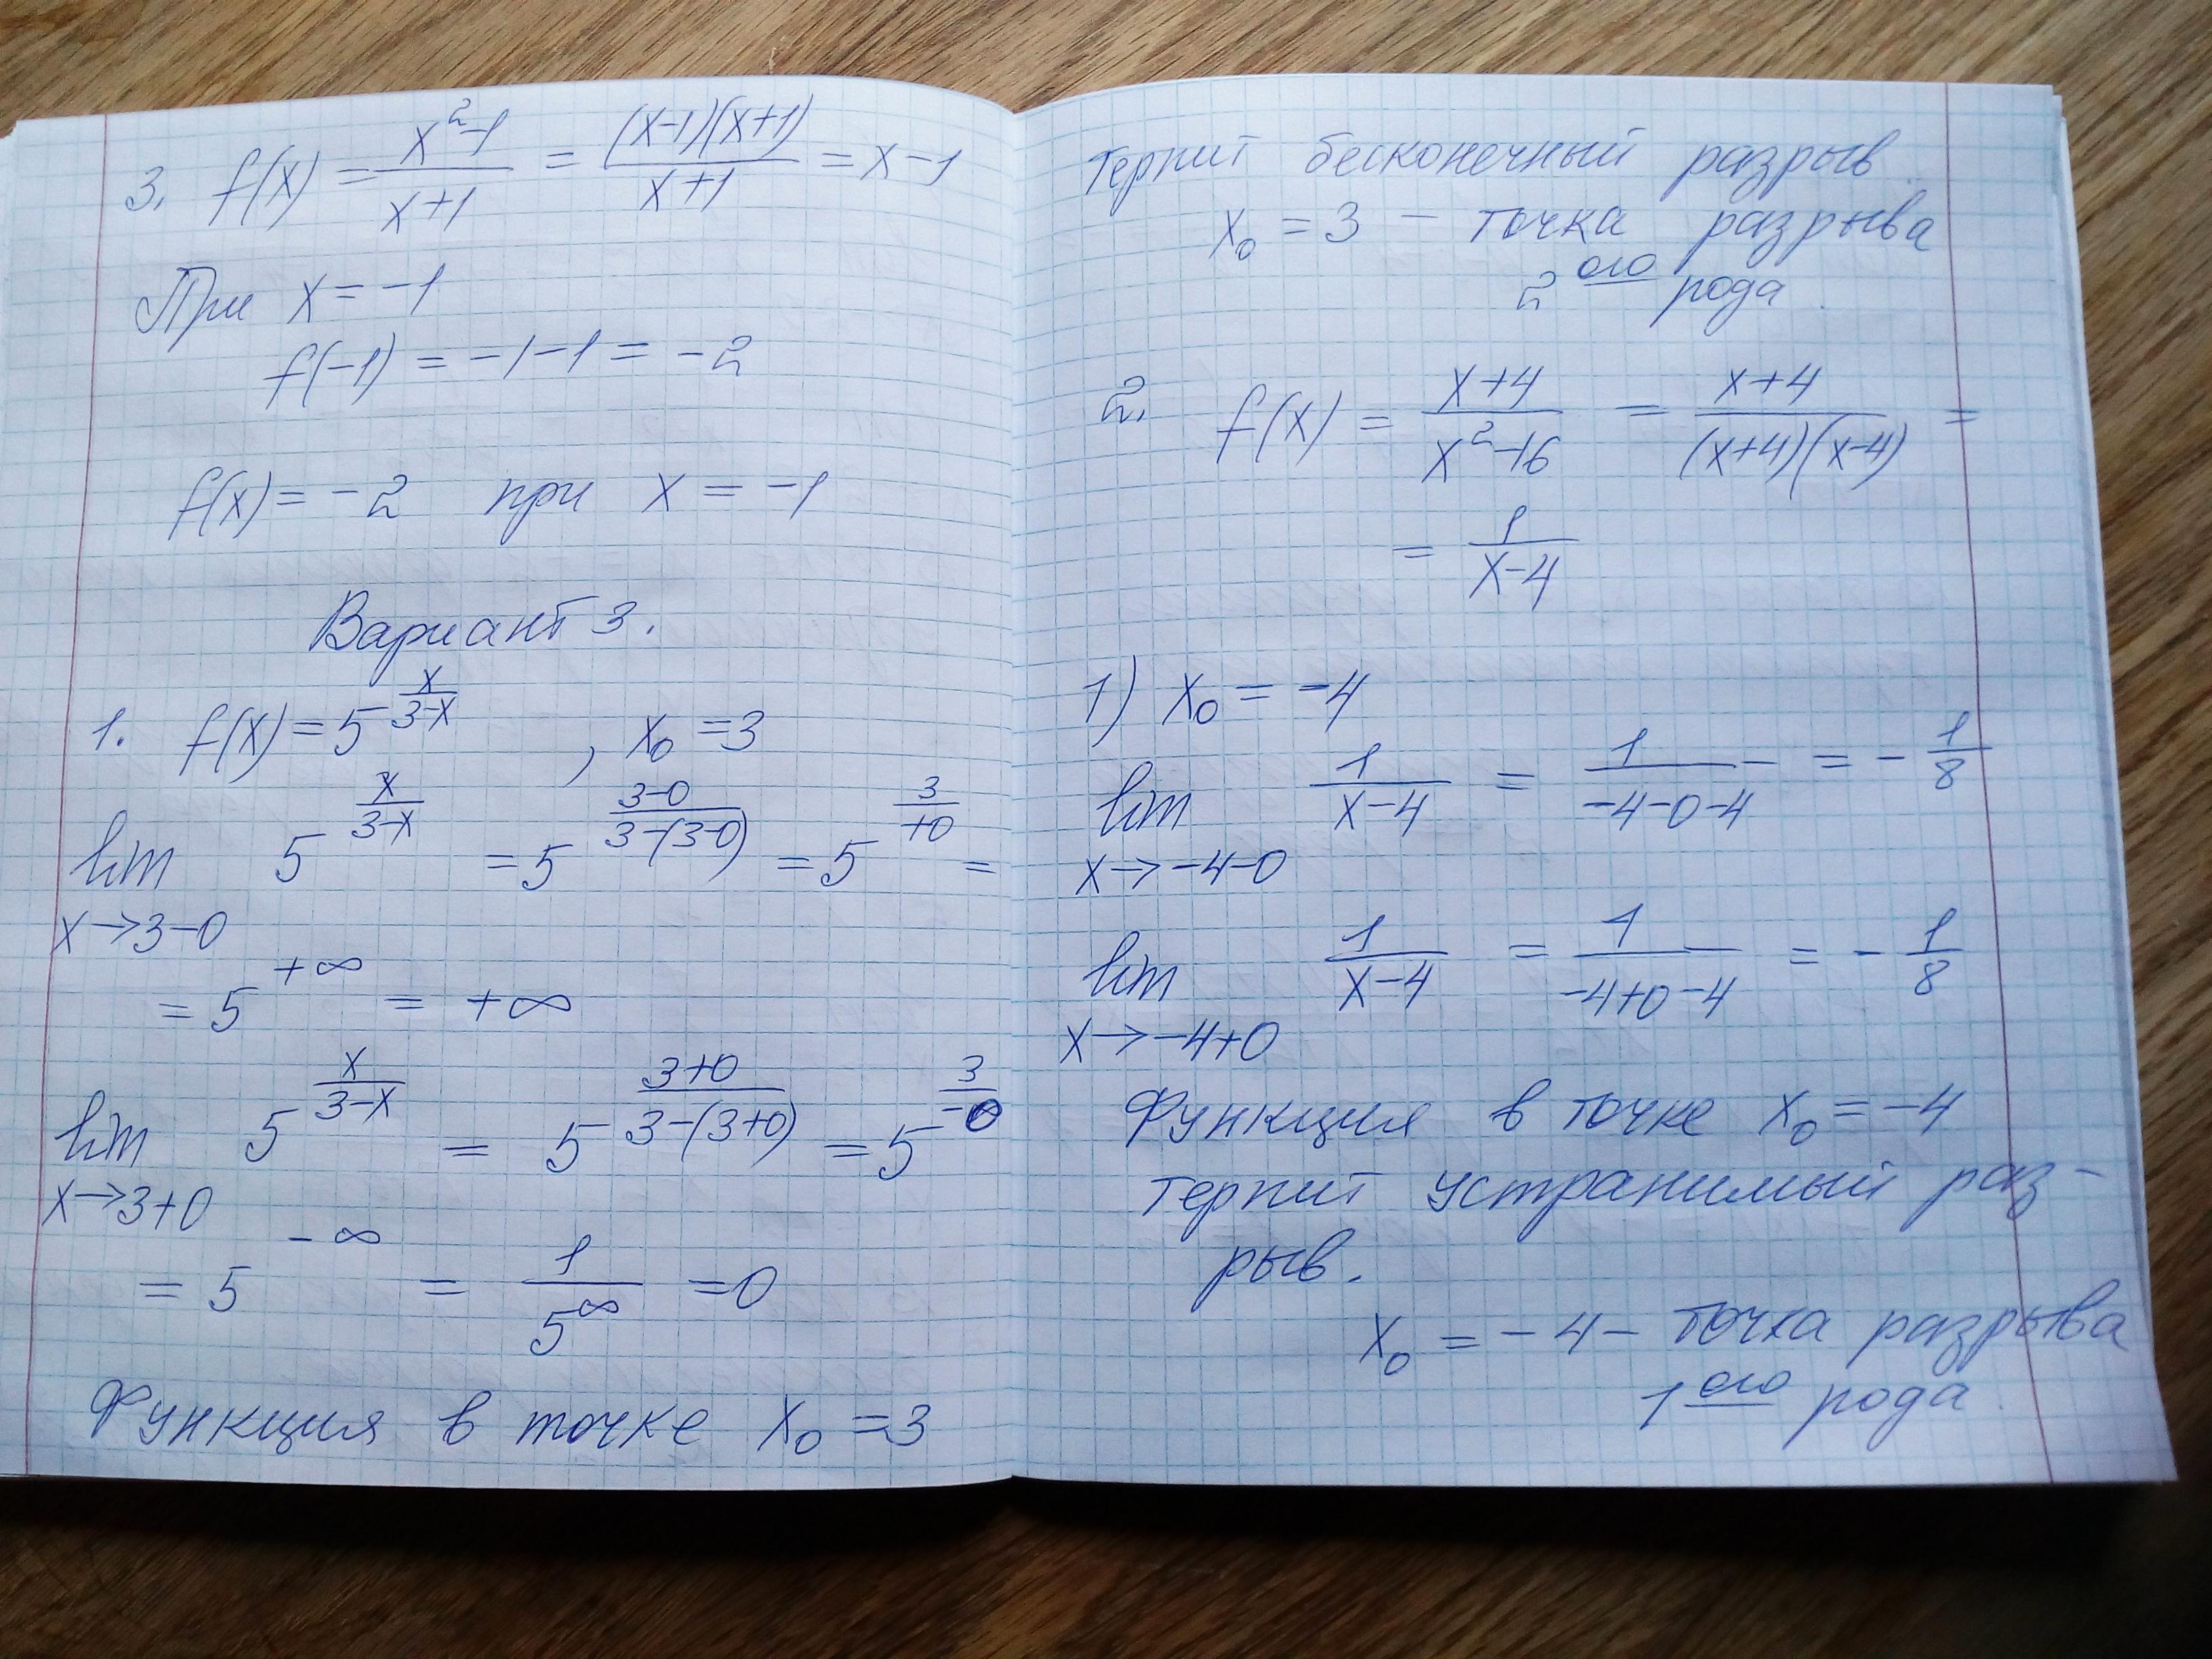 3. f(x) = (x²-1)/(x+1) = ((x-1)(x+1))/(x+1) = x-1
При x = -1
f(-1) = -1-1 = -2
f(x) = -2 при x = -1
Вариант 3.
1. f(x) = 5^(x/(3-x)), x₀ = 3
lim x→3-0 5^(x/(3-x)) = 5^((3-0)/(3-(3-0))) = 5^(3/+0) =
= 5^(+∞) = +∞
lim x→3+0 5^(x/(3-x)) = 5^((3+0)/(3-(3+0))) = 5^(3/-0)
= 5^(-∞) = 1/5^∞ = 0
Функция в точке x₀ = 3
терпит бесконечный разрыв.
x₀ = 3 – точка разрыва
2ого рода.
2. f(x) = (x+4)/(x²-16) = (x+4)/((x+4)(x-4)) =
= 1/(x-4)
1) x₀ = -4
lim x→-4-0 1/(x-4) = 1/(-4-0-4) = -1/8
lim x→-4+0 1/(x-4) = 1/(-4+0-4) = -1/8
Функция в точке x₀ = -4
терпит устранимый раз-
рыв.
x₀ = -4 – точка разрыва
1ого рода.